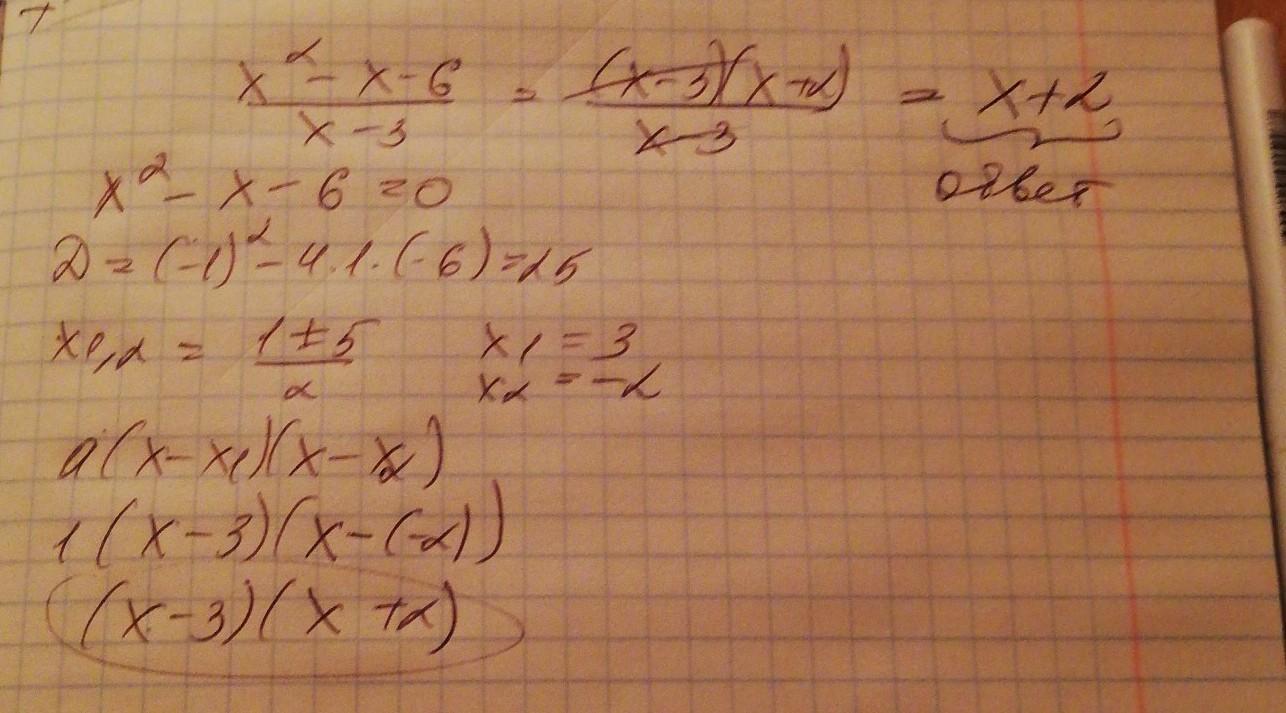 x² - x - 6 / x - 3 = (x-3)(x+2) / x-3 = x+2
ответ
x² - x - 6 = 0
D = (-1)² - 4·1·(-6) = 25
x1,2 = 1 ± 5 / 2    x1 = 3
x2 = -2
a(x - x1)(x - x2)
1(x - 3)(x - (-2))
(x - 3)(x + 2)